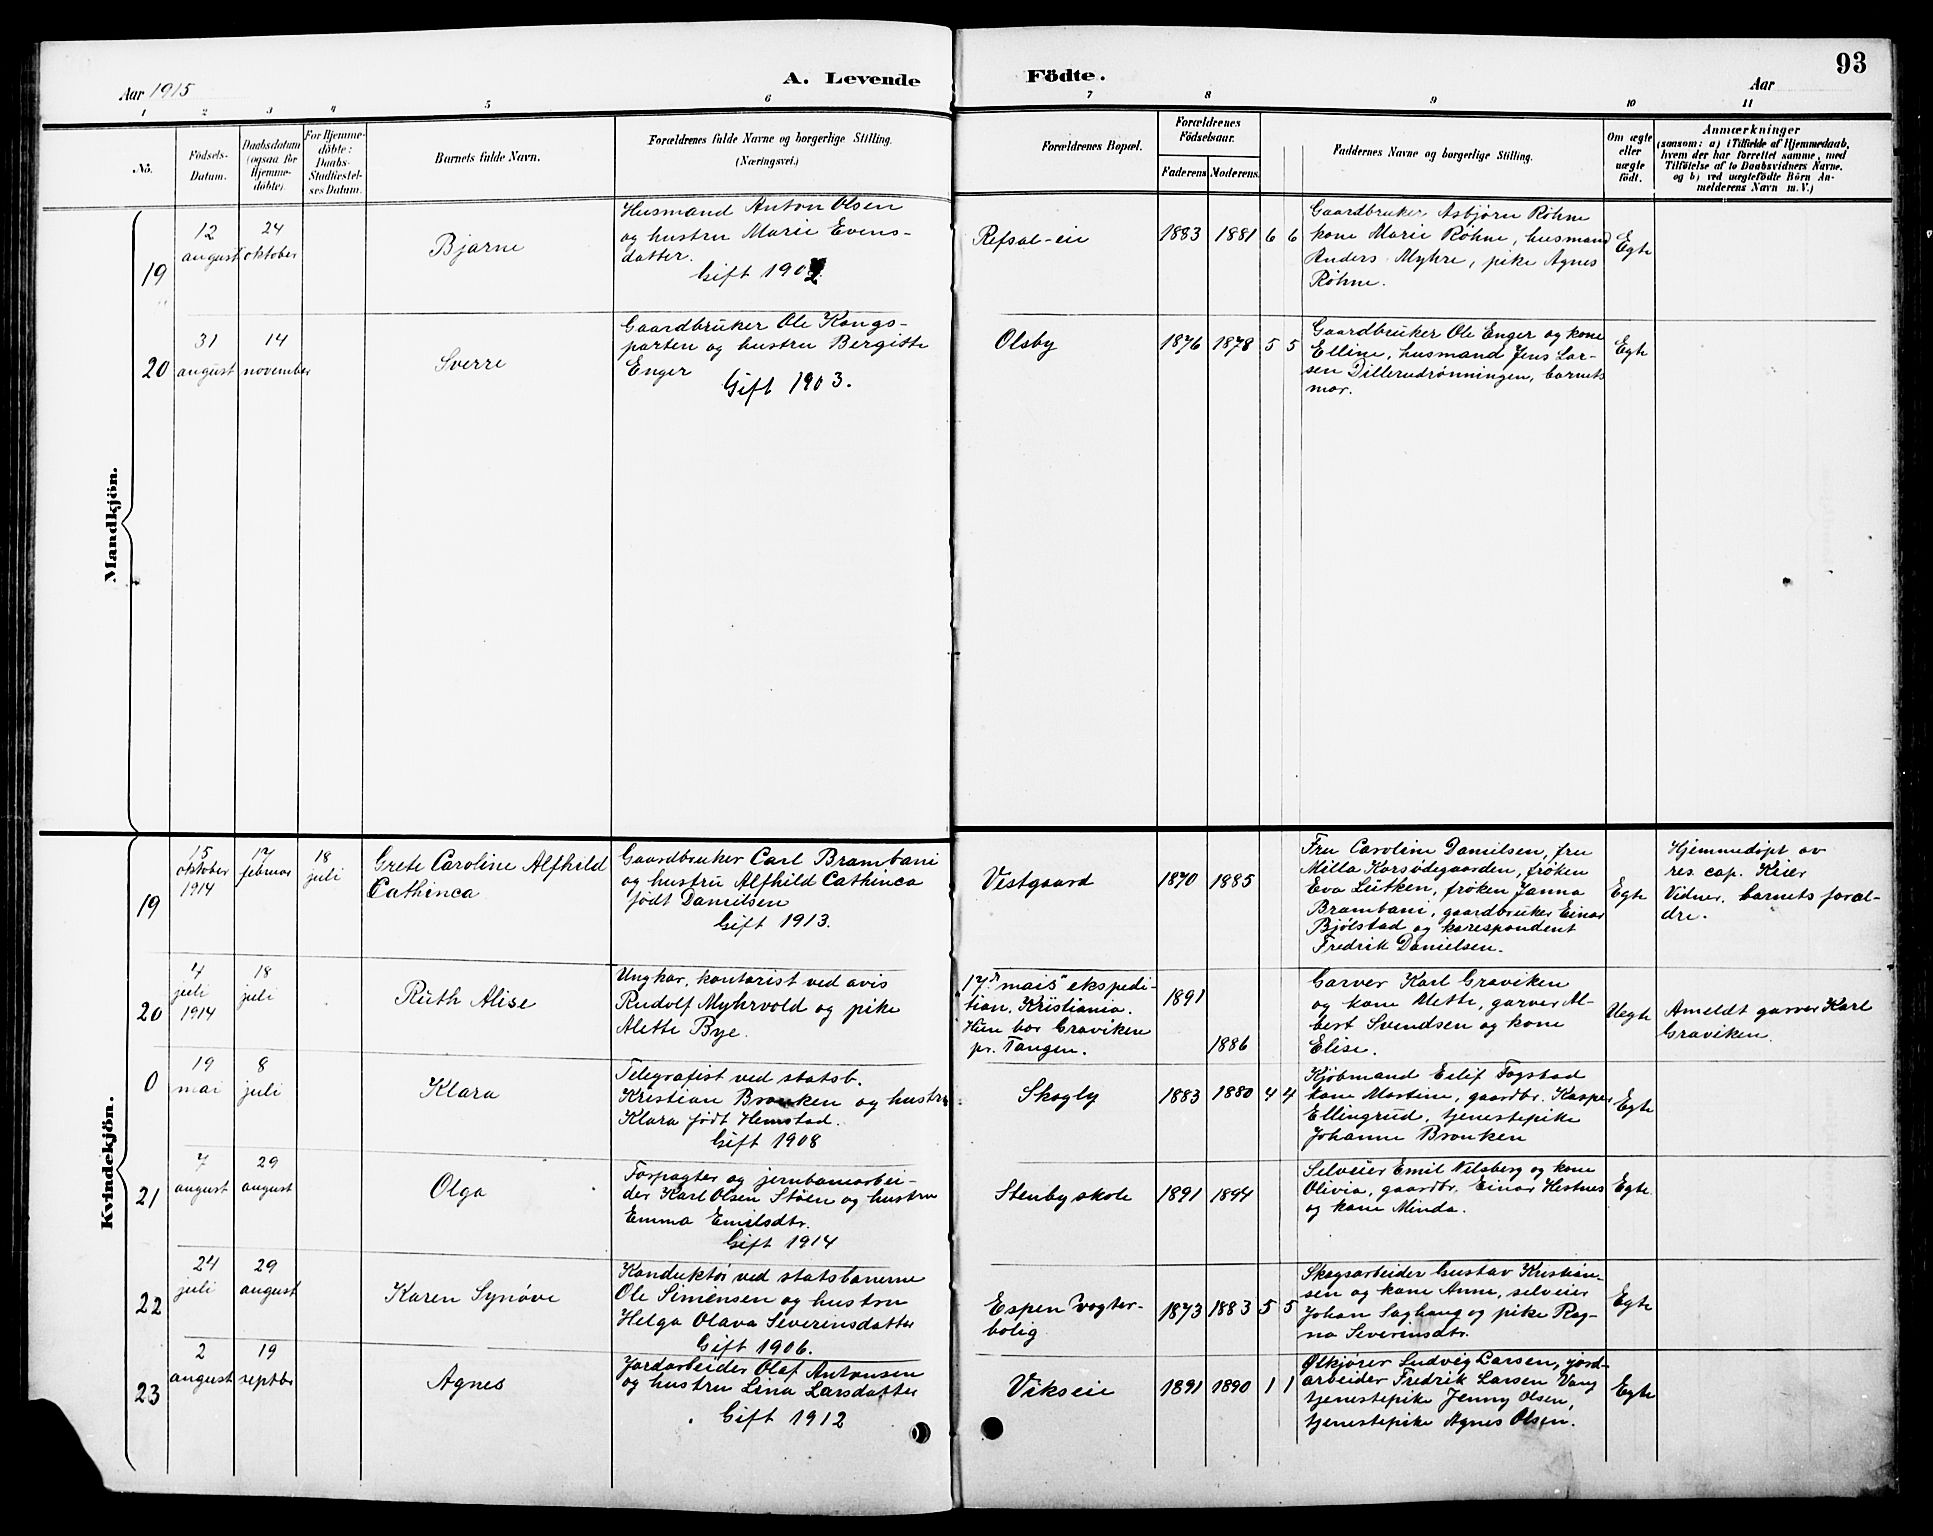 Aar 1915
A. Levende
Födte.
Aar
93
1 2 3 4 5 6 7 8 9 10 11
No.
Födsels-
Datum.
Daabsdatum
(ogsaa for
Hjemme-
döbte).
For Hjemme-
döbte:
Daabs-
Stadfæstel-
ses Datum.
Barnets fulde Navn.
Forældrenes fulde Navne og borgerlige Stilling.
(Næringsvei.)
Forældrenes Bopæl.
Forældrenes
Födselsaar.
Faderens
Moderens
Faddernes Navne og borgerlige Stilling.
Om ægte
eller
uægte
födt.
Anmærkninger
(saasom: a) i Tilfælde af Hjemmedaab,
hvem der har forrettet samme, med
Tilföielse af to Daabsvidners Navne.
og b) ved uægtefödte Börn An-
melderens Navn m. V.)
Mandkjön.
19
12
august
24
oktober
Bjarne
Husmand Anton Olsen
og hustru Marie Evens-
datter.
Gift 1902
Refsal-eie
1883 1881 6 6
Gaardbruker Asbjørn Røhne
kone Marie Røhne, husmand
Anders Myhre, pike Agnes
Røhne.
Egte
20
31
august
14
november
Sverre
Gaardbruker Ole Kongs-
parten og hustru Bergitte
Enger
Gift 1903.
Olsby
1876 1878 5 5
Gaardbruker Ole Enger og kone
Elline, husmand Jens Lar-
sen Dillerudrønningen, barnets
mor.
Egte
Kvindekjön.
19
15
oktober
1914
17
februar
18
juli
Grete Caroline Alfhild
Cathinca
Gaardbruker Carl Brambani
og hustru Alfhild Cathinca
født Danielsen
Gift 1913.
Vestgaard
1870 1885
Fru Caroline Danielsen, fru
Milla Korsødegaarden, frøken
Eva Lütken, frøken Janna
Brambani, gaardbruker Einar
Bjølstad og korespondent
Fredrik Danielsen.
Egte
Hjemmedøpt av
res. cap. Kiær
Vidner, barnets foræl-
dre.
20
4
juli
1914
18
juli
Ruth Alise
Ungkar, kontorist ved avis
Rudolf Myhrvold og pike
Alette Bye.
"17de mais" ekspedi-
tion, Kristiania.
Hun bor Graviken
pr. Tangen.
1891
1886
Garver Karl Graviken
og kone Mette, garver Al-
bert Svendsen og kone
Elise.
Uegte
Ameldt garver Karl
Graviken.
0
19
mai
8
juli
Klara
Telegrafist ved statsb.
Kristian Bronken og hustru
Klara født Hemstad.
Gift 1908
Skogly
1883 1880 4 4
Kjøbmand Eilif Fogstad
kone Martine, gaardbr. Kasper
Ellingrud, tjenestepike
Johanne Bronken
Egte
21
7
august
29
august
Olga
Forpagter og jernbanearbei-
der Karl Olsen Støen og hustru
Emma Emilsdtr.
Gift 1914
Stenby skole
1891 1894
Selveier Emil Nilsberg og kone
Olivia, gaardbr. Einar Hestnes
og kone Minda.
Egte
22
24
juli
29
august
Karen Synøve
Konduktør ved statsbanerne
Ole Simensen og hustru
Helga Olava Severinsdatter
Gift 1906.
Espen vogter-
bolig
1873 1883 5 5
Skogsarbeider Gustav Kristian-
sen og kone Anne, selveier
Johan Saghaug og pike Rag-
na Severinsdtr.
Egte
23
2
august
19
septbr
Agnes
Jordarbeider Olaf Antonsen
og hustru Lina Larsdatter
Gift 1912
Vikseie
1891 1890 1 1
Ølkjører Ludvig Larsen, jord-
arbeider Fredrik Larsen Vang
tjenestepike Jenny Olsen,
tjenestepike Agnes Olsen.
Egte